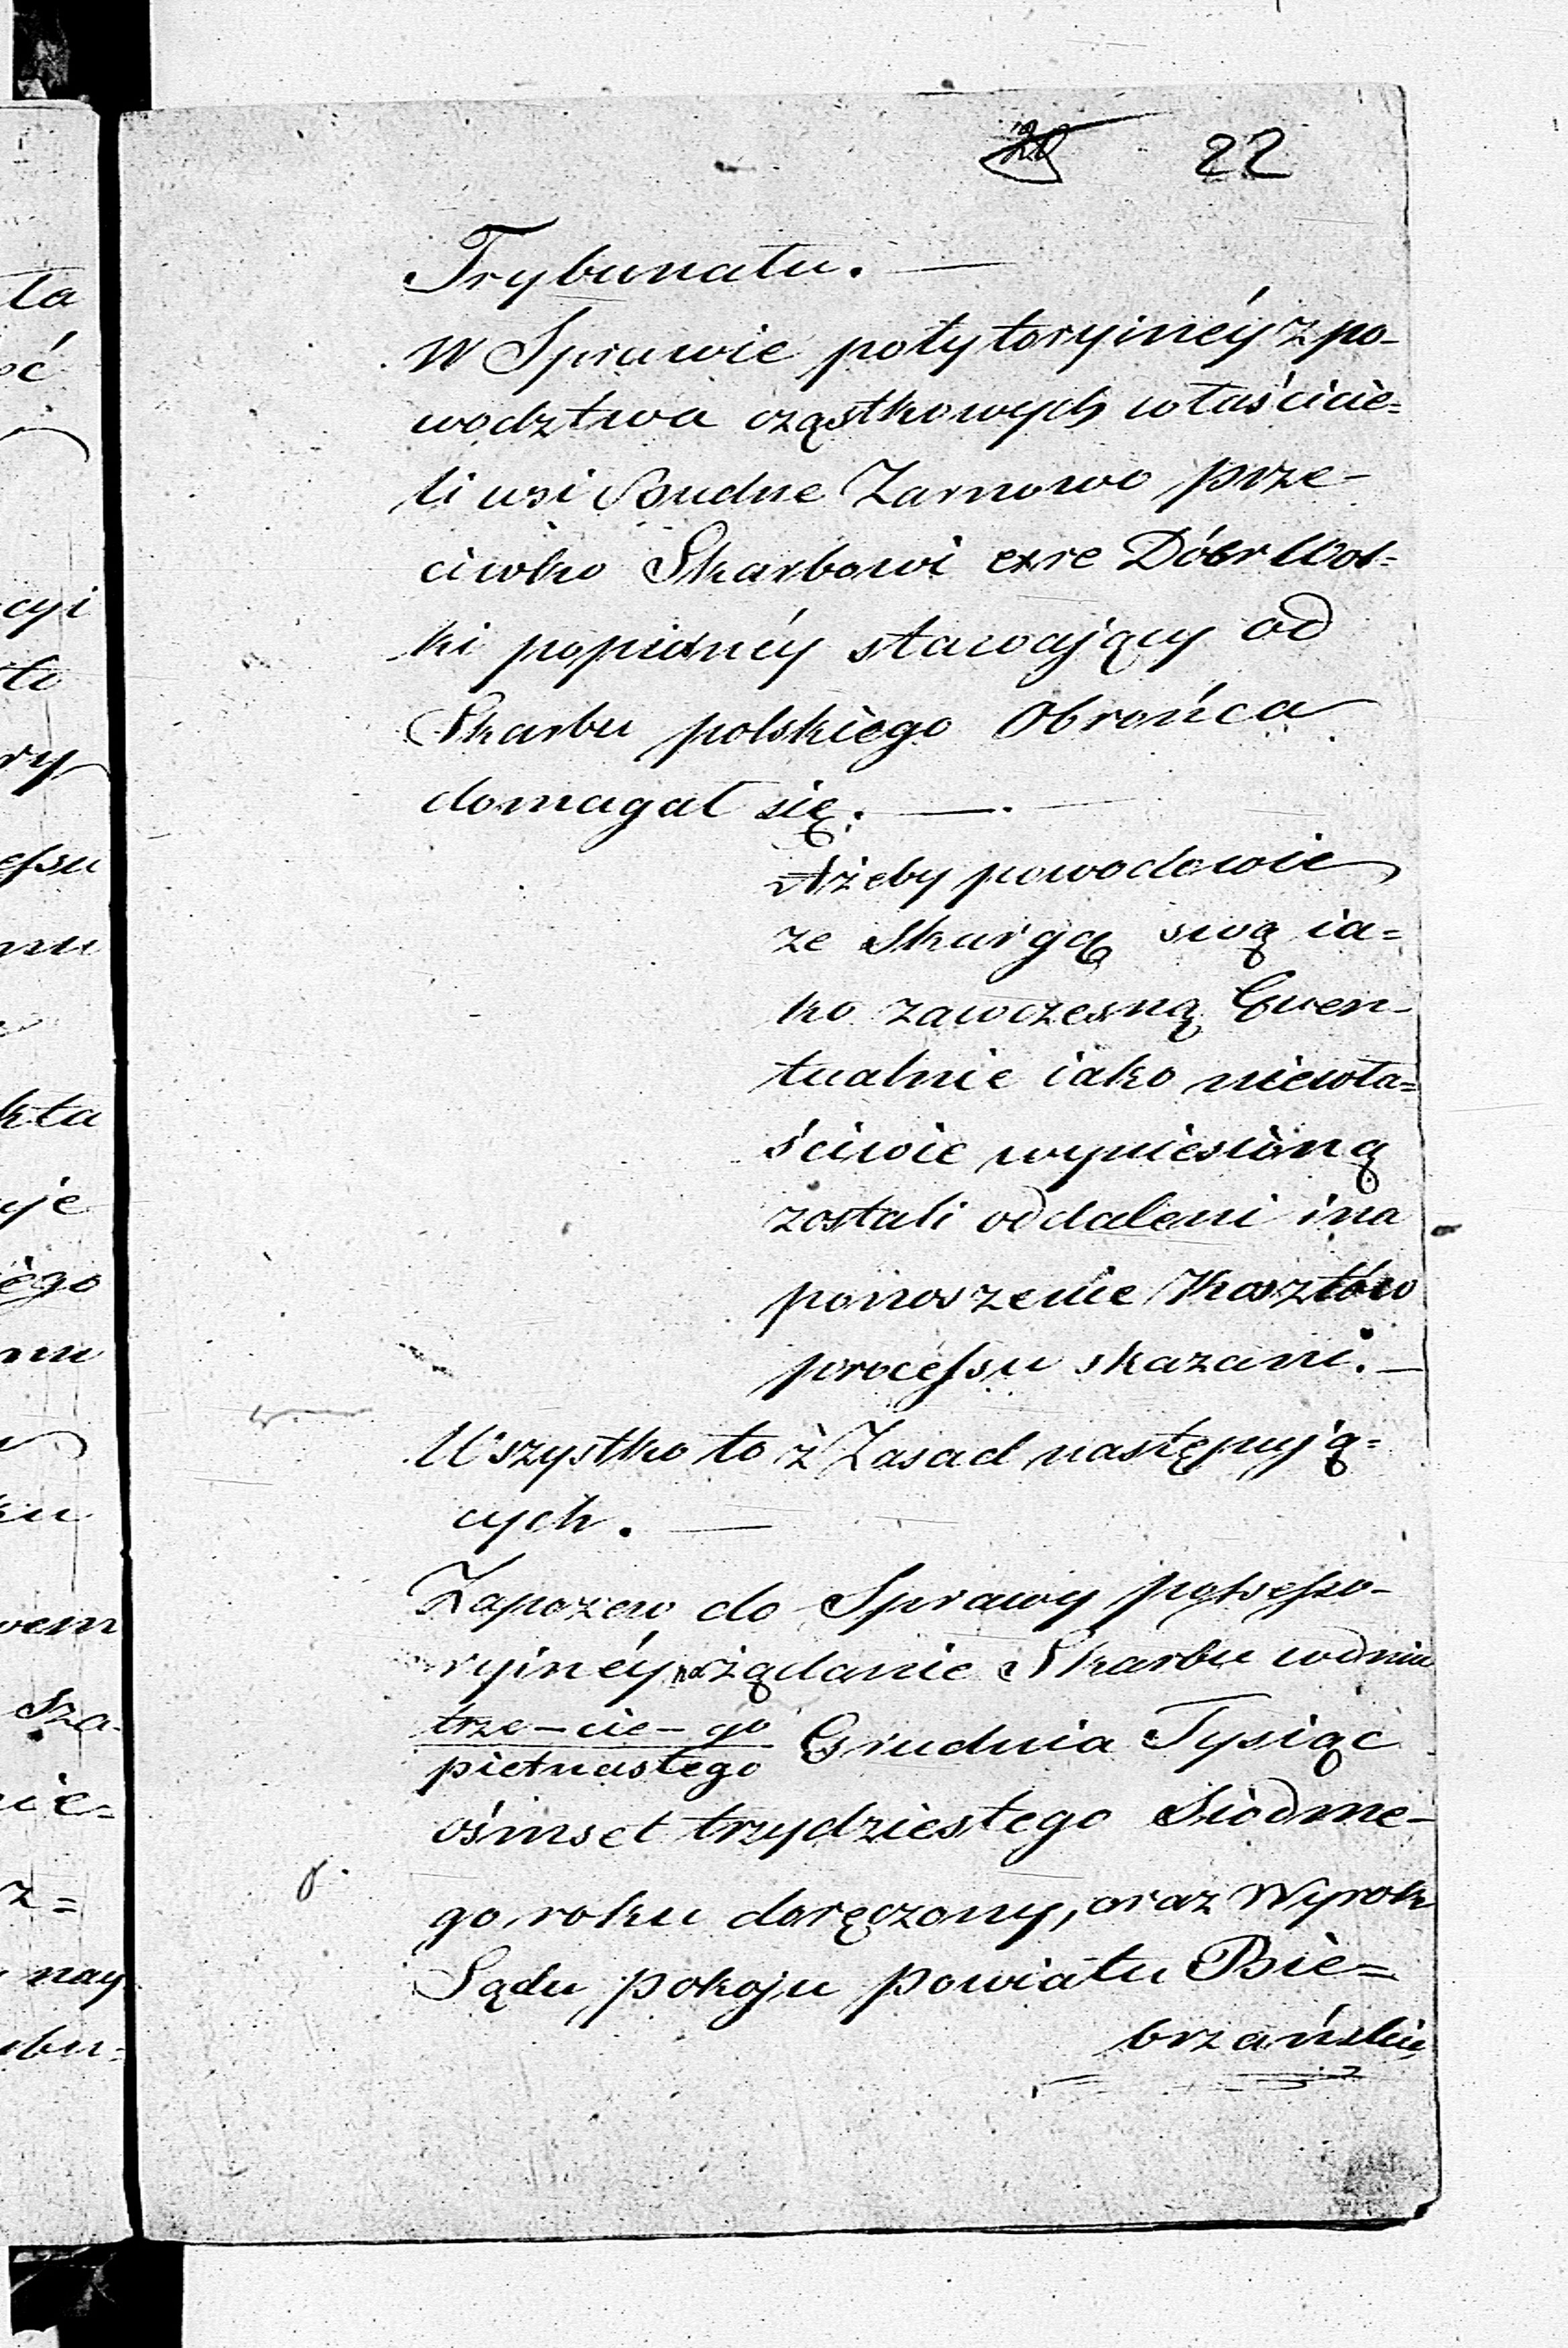 22
Trybunału. —
W Sprawie potytoryinéy z po-
wodztwa cząstkowych właścicie=
li wsi Budne Zarnowo prze-
ciwko Skarbowi exre Dóbr Wol-
ki popiołnéy stawający od
Skarbu polskiego Obrońca
domagał się. —
Ażeby powodowie
ze Skargą swą ia=
ko zawczesną Ewen-
tualnie iako niewła=
ściwie wyniesioną
zostali oddaleni i na
ponoszenie Kosztów
processu skazani. —
Wszystko to z Zasad następują=
cych. —
Zapozew do Sprawy possesso-
ryinéy na żądanie Skarbu w dniu
trze-cie-go
pietnastego Grudnia Tysiąc
ośmset trzydziestego Siodme-
go roku doręczony, oraz Wyrok
Sądu pokoju Powiatu Bie=
brzańskie
ła
oć
cyi
to
ry
essu
mu
kta
uje
iego
ku
wem
sza-
nie=
z=
nay
ybu=